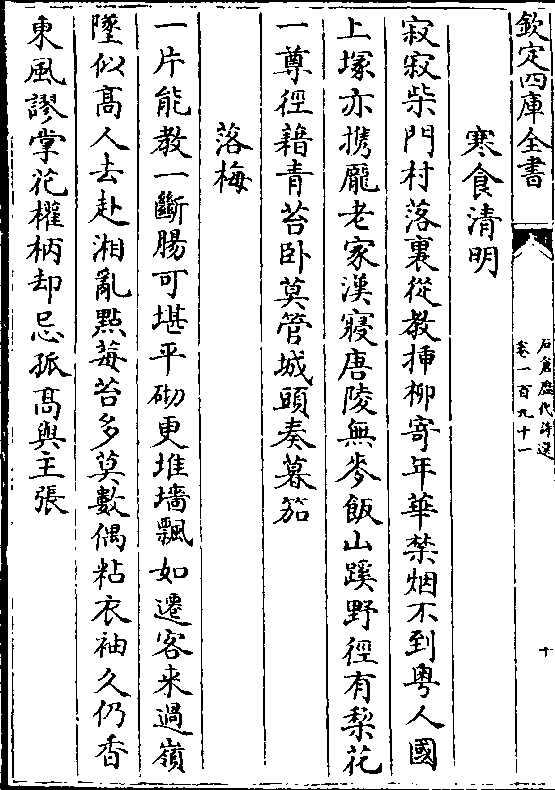 欽定四庫全書
石倉歷代詩選
卷一百九十一
十
寒食清明
寂寂柴門村落裏從教揷柳寄年華禁烟不到粤人國
上塜亦携龎老家漢寢唐陵無麥飯山蹊野徑有梨花
一尊徑藉青苔卧莫管城頭奏暮笳
落梅
一片能教一斷腸可堪平砌更堆墻飄如遷客来過嶺
墜似髙人去赴湘亂㸃莓苔多莫數偶粘衣袖久仍香
東風謬掌花權柄却忌孤髙與主張